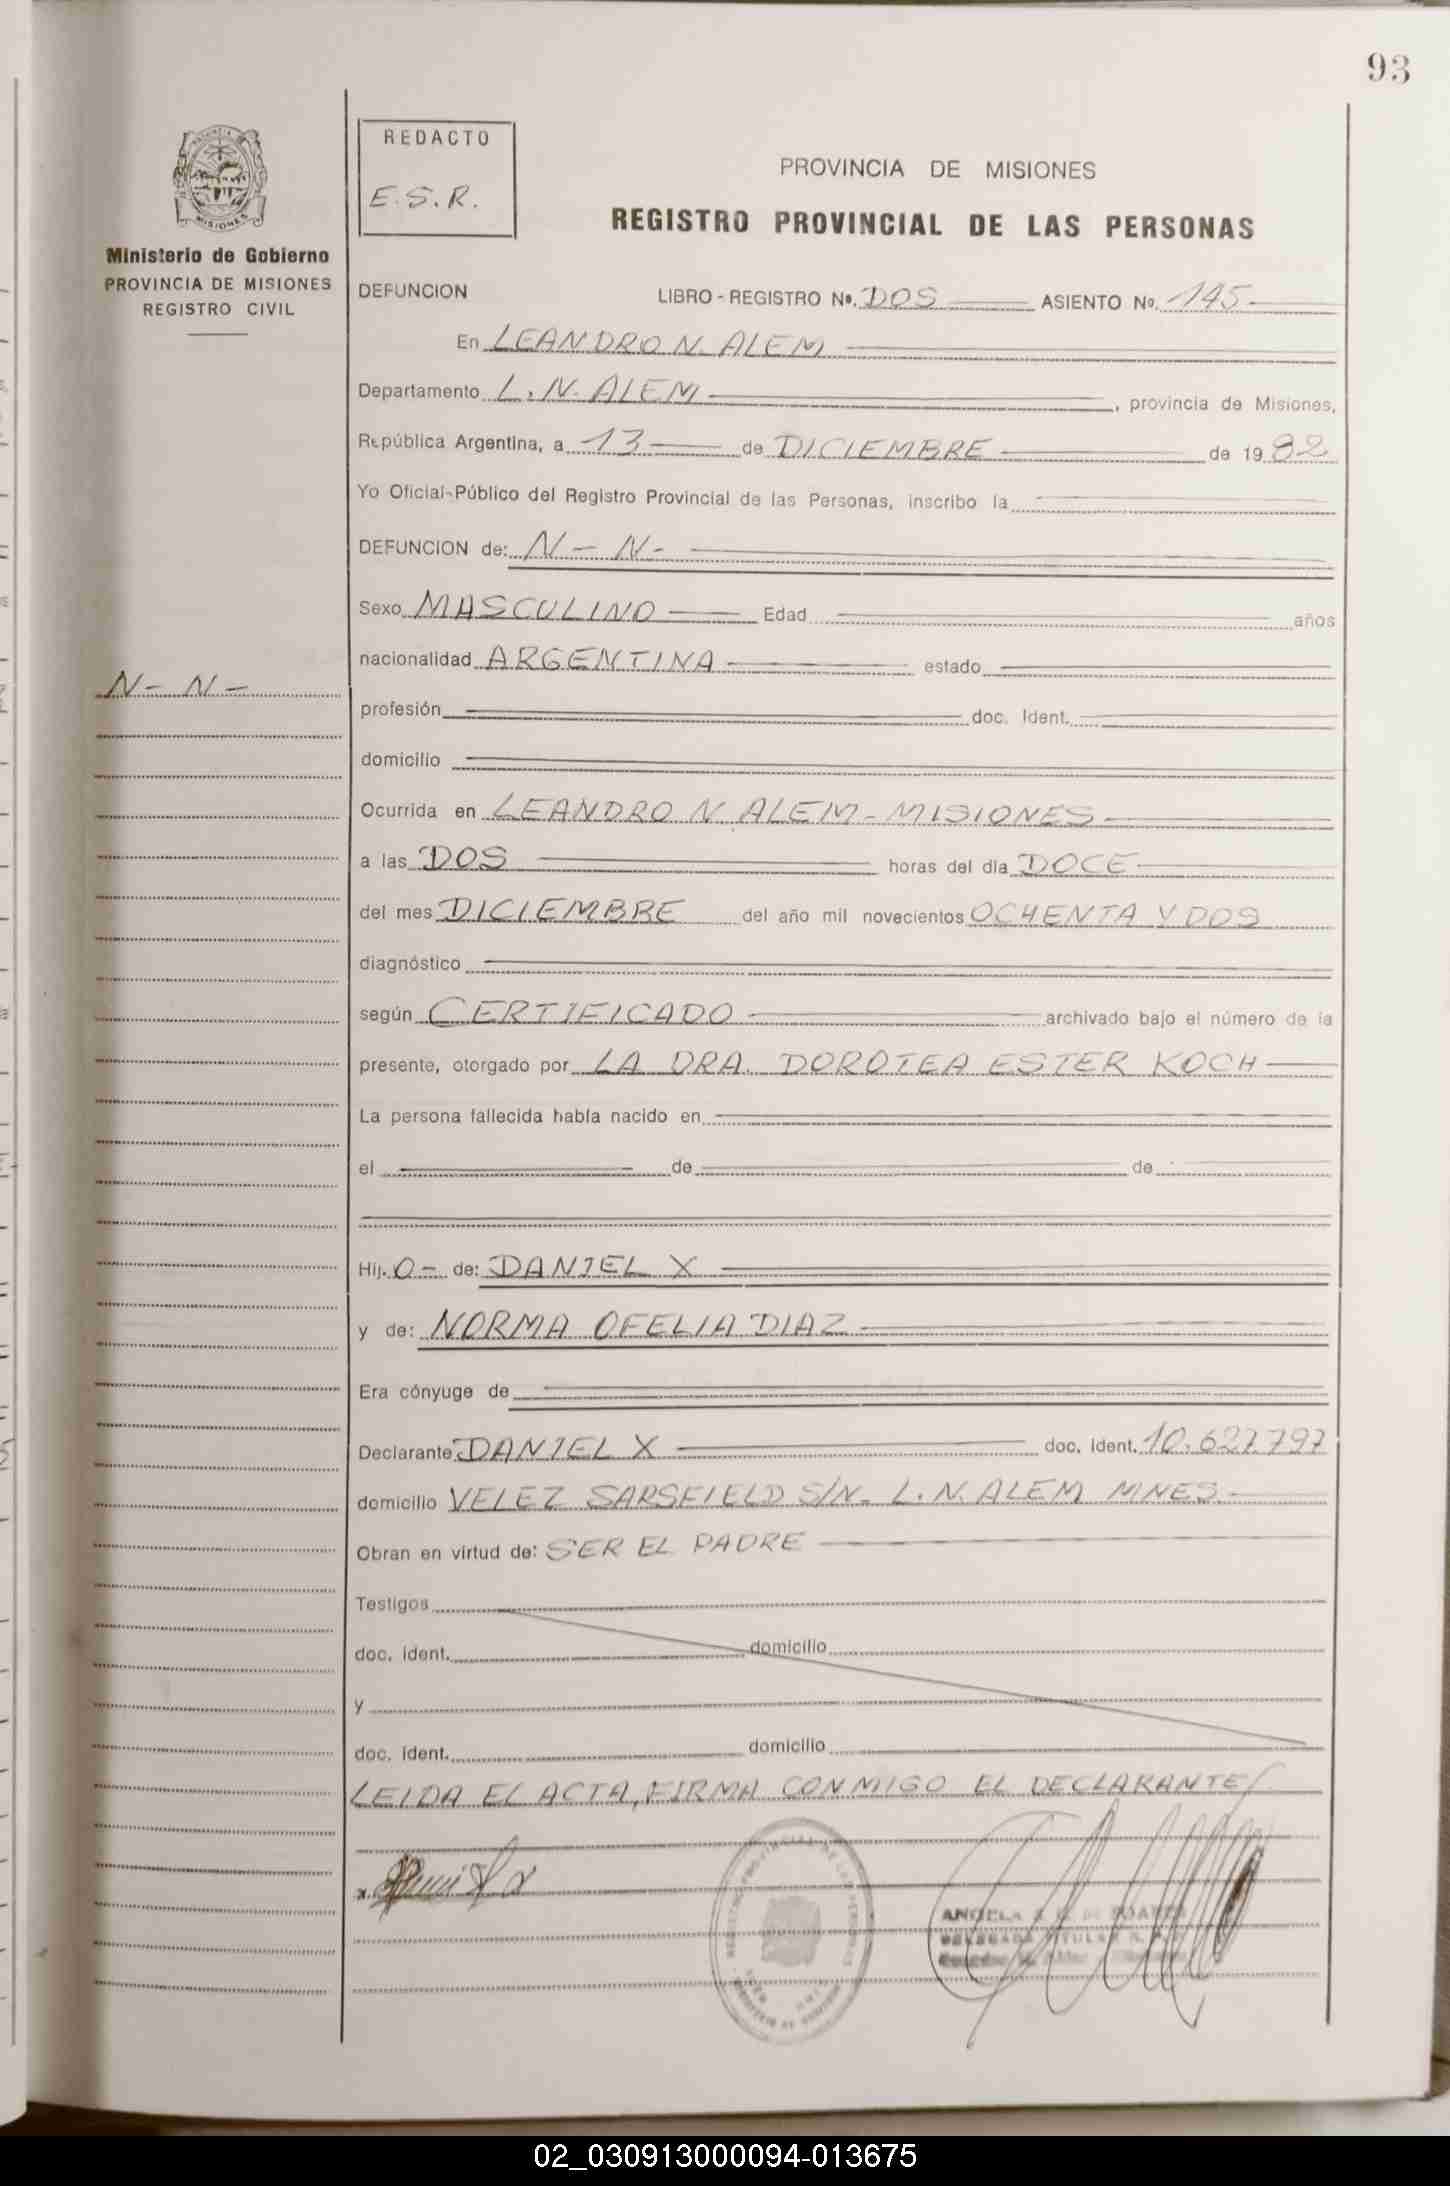 93
REDACTO
E.S.R.
PROVINCIA DE MISIONES
REGISTRO PROVINCIAL DE LAS PERSONAS
MISIONES
Ministerio de Gobierno
PROVINCIA DE MISIONES
REGISTRO CIVIL
DEFUNCION LIBRO - REGISTRO Nº. DOS ASIENTO Nº. 145
En LEANDRO N. ALEM
Departamento L. N. ALEM, provincia de Misiones,
República Argentina, a 13 de DICIEMBRE de 1982
Yo Oficial-Público del Registro Provincial de las Personas, inscribo la
DEFUNCION de: N - N -
Sexo MASCULINO Edad años
nacionalidad ARGENTINA estado
N - N -
profesión doc. Ident.
domicilio
Ocurrida en LEANDRO N. ALEM - MISIONES
a las DOS horas del día DOCE
del mes DICIEMBRE del año mil novecientos OCHENTA Y DOS
diagnóstico
según CERTIFICADO archivado bajo el número de la
presente, otorgado por LA DRA. DOROTEA ESTER KOCH
La persona fallecida había nacido en
el de de
Hij. O - de: DANIEL X
y de: NORMA OFELIA DIAZ
Era cónyuge de
Declarante DANIEL X doc. Ident. 10.627.797
domicilio VELEZ SARSFIELD S/N. L. N. ALEM MNES.
Obran en virtud de: SER EL PADRE
Testigos
doc. ident. domicilio
y
doc. ident. domicilio
LEIDA EL ACTA, FIRMA CONMIGO EL DECLARANTE
x.
ANGELA
02_030913000094-013675